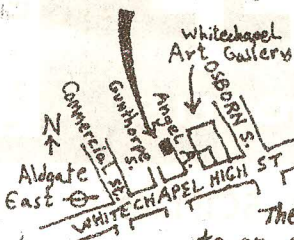 Whitechapel
Art Gallery
OSBORN S.
Angel
A.
Gunthorpe
S.
Commercial St.
N
Aldgate
East
WHITECHAPEL HIGH ST
The